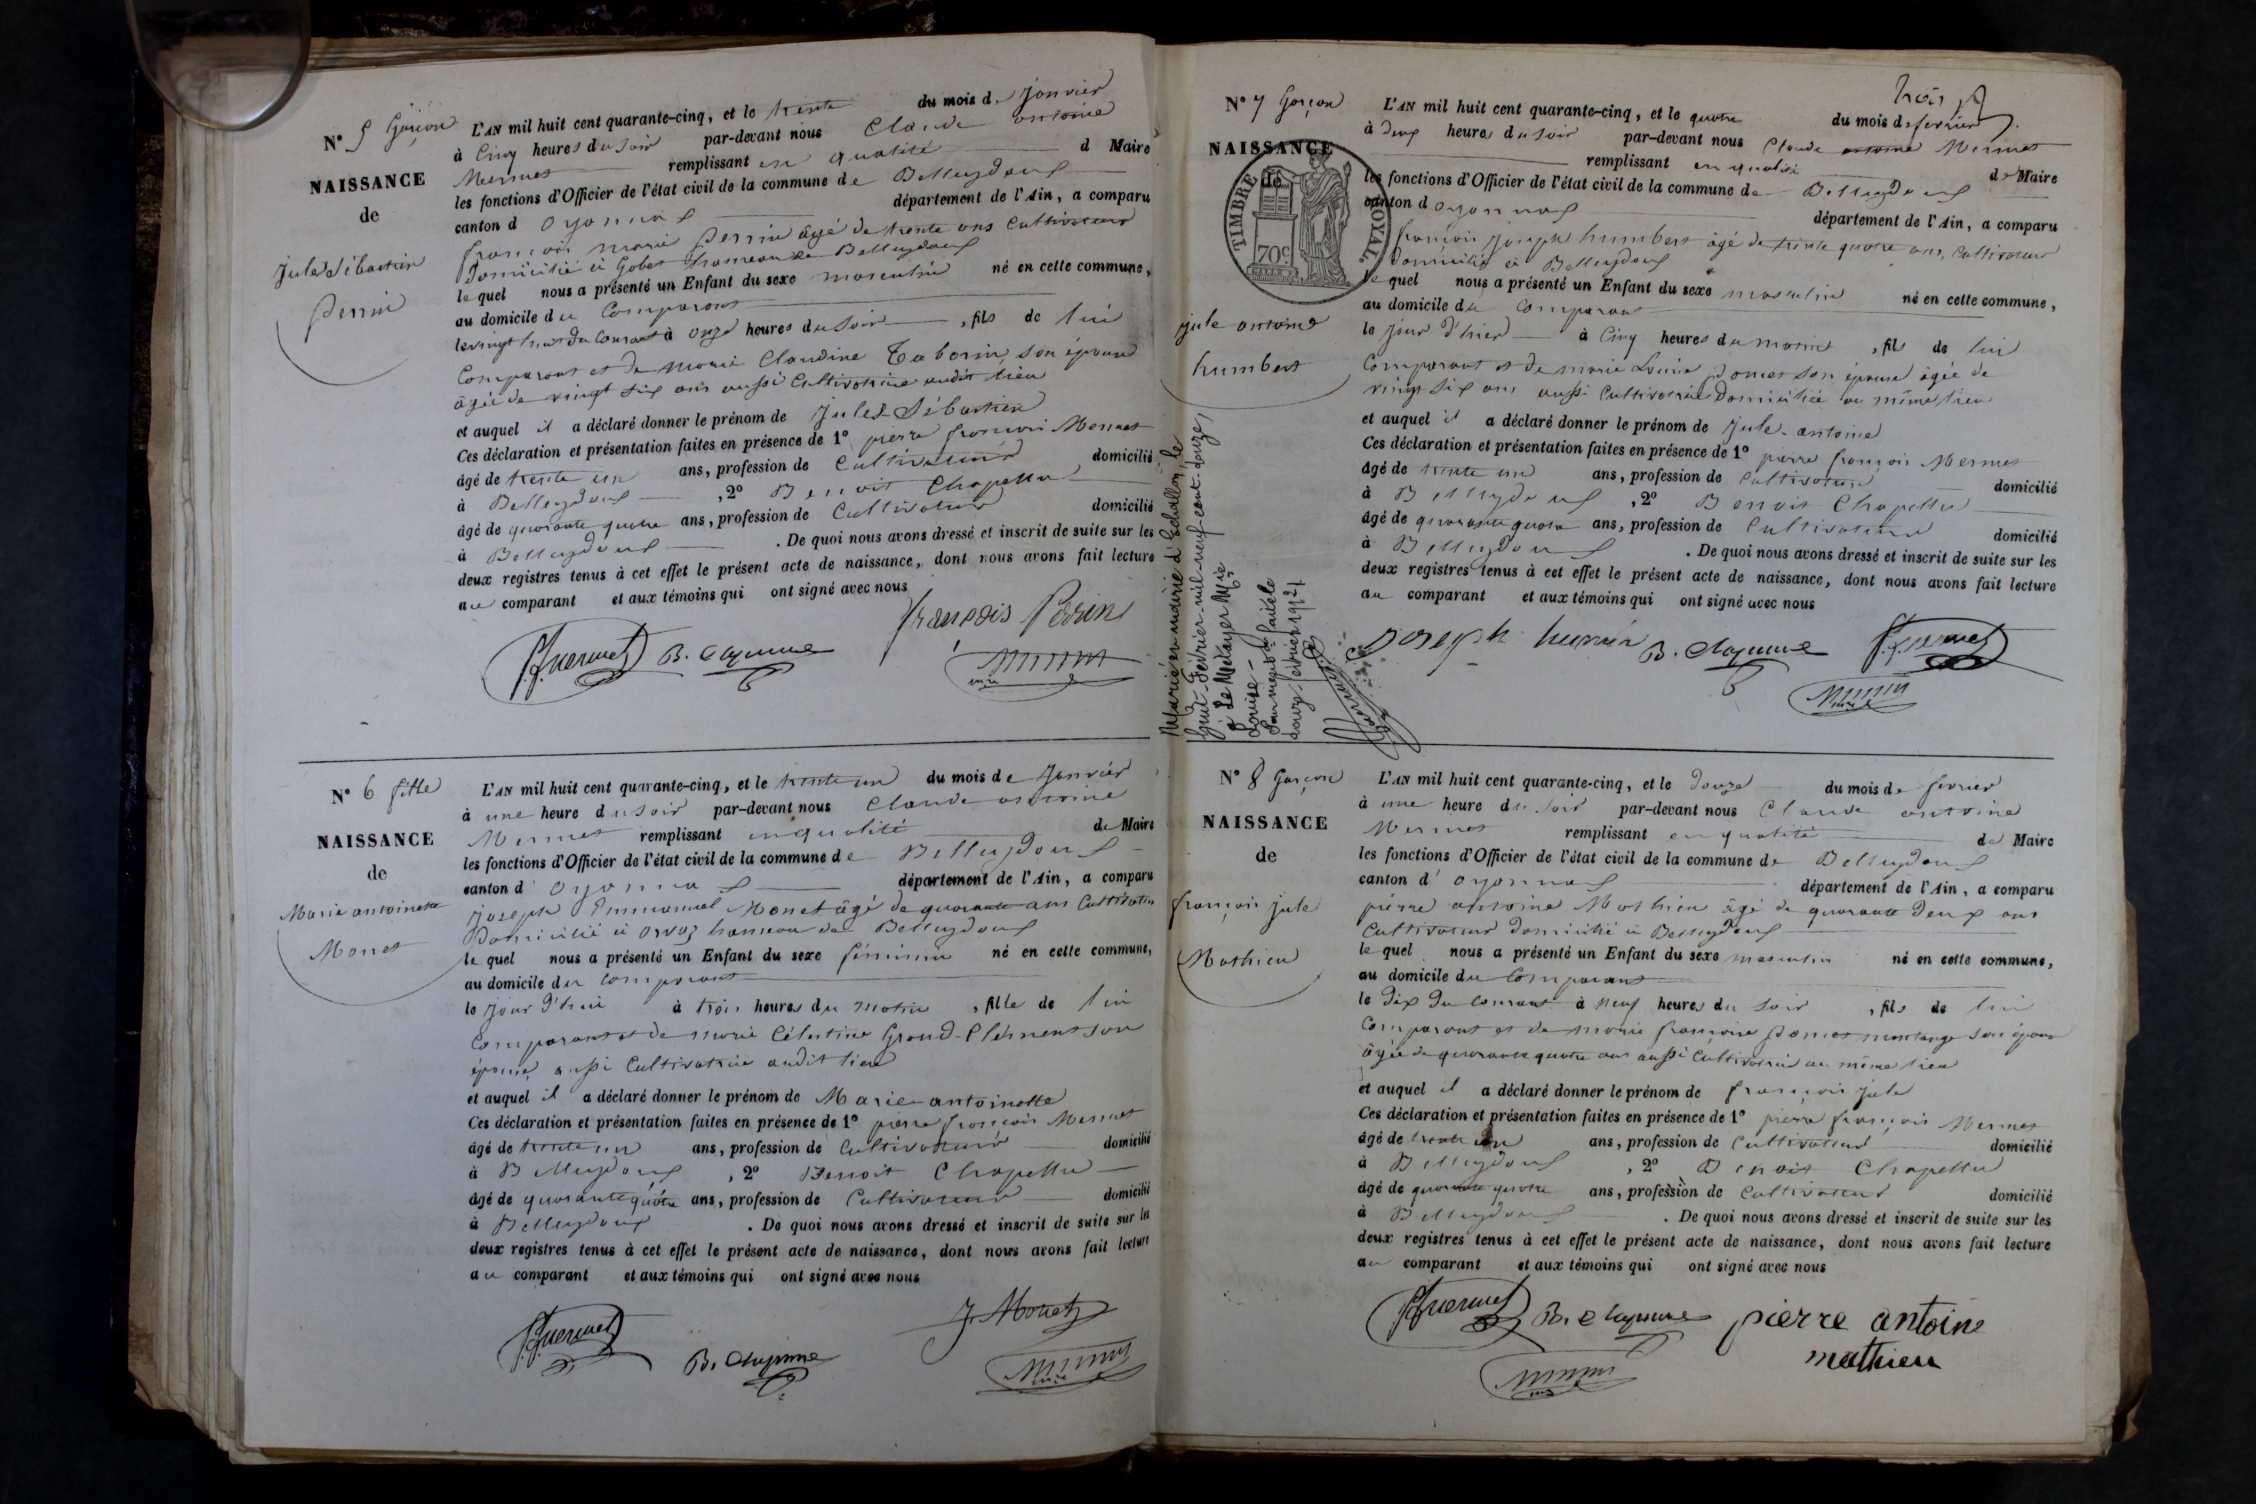 N° 5 Garçon
NAISSANCE
de
Jules Sébastien
Perrin
L'AN mil huit cent quarante-cinq, et le trente du mois de Janvier
à Cinq heures du soir par-devant nous Claude antoine
Mermet remplissant en qualité d Maire
les fonctions d'Officier de l'état civil de la commune de Belleydoux
canton d Oyonnax département de l'Ain, a comparu
françois marie Perrin âgé de trente ans Cultivateur
Domicilié à Gobet hameau de Belleydoux
lequel nous a présenté un Enfant du sexe masculin né en cette commune,
au domicile du Comparant
le vingt huit du Courant à onze heures du soir, fils de lui
Comparant et de marie Claudine Taborin son épouse
âgée de vingt six ans aussi Cultivatrice audit lieu
et auquel il a déclaré donner le prénom de Jules Sébastien
Ces déclaration et présentation faites en présence de 1° pierre françois Mermet
âgé de trente un ans, profession de Cultivateur domicilié
à Belleydoux, 2° Benoit Chapellu
âgé de quarante quatre ans, profession de Cultivateur domicilié
à Belleydoux. De quoi nous avons dressé et inscrit de suite sur les
deux registres tenus à cet effet le présent acte de naissance, dont nous avons fait lecture
au comparant et aux témoins qui ont signé avec nous
françois Perrin
N° 6 fille
NAISSANCE
de
Marie antoinette
Monet
L'AN mil huit cent quarante-cinq, et le trente un du mois de Janvier
à une heure du soir par-devant nous Claude antoine
Mermet remplissant en qualité de Maire
les fonctions d'Officier de l'état civil de la commune de Belleydoux
canton d' Oyonnax département de l'Ain, a comparu
Joseph Emmanuel Monet âgé de quarante ans Cultivateur
Domicilié à orvoz hameau de Belleydoux
lequel nous a présenté un Enfant du sexe féminin né en cette commune,
au domicile du comparant
le jour d'hui à trois heures du matin, fille de lui
Comparant et de marie Célestine Grand-Clément son
épouse, aussi Cultivatrice audit lieu
et auquel il a déclaré donner le prénom de Marie antoinette
Ces déclaration et présentation faites en présence de 1° pierre françois Mermet
âgé de trente un ans, profession de Cultivateur domicilié
à Belleydoux, 2° Benoit Chapellu
âgé de quarante quatre ans, profession de Cultivateur domicilié
à Belleydoux. De quoi nous avons dressé et inscrit de suite sur les
deux registres tenus à cet effet le présent acte de naissance, dont nous avons fait lecture
au comparant et aux témoins qui ont signé avec nous
J. Monet
trois
N° 7 Garçon
NAISSANCE
de
TIMBRE ROYAL.
70c
jule antoine
humbert
L'AN mil huit cent quarante-cinq, et le quatre du mois de fevrier
à deux heures du soir par-devant nous Claude antoine Mermet
remplissant en qualité de Maire
les fonctions d'Officier de l'état civil de la commune de Belleydoux
canton d oyonnax département de l'Ain, a comparu
françois joseph humbert âgé de trente quatre ans, Cultivateur
Domicilié à Belleydoux
lequel nous a présenté un Enfant du sexe masculin né en cette commune,
au domicile du Comparant
le jour d'hier à Cinq heures du matin, fils de lui
Comparant et de marie Louise Domet son épouse âgée de
vingt six ans aussi Cultivatrice Domiciliée au même lieu
et auquel il a déclaré donner le prénom de Jule-antoine
Ces déclaration et présentation faites en présence de 1° pierre françois Mermet
âgé de trente un ans, profession de Cultivateur domicilié
à Belleydoux, 2° Benoit Chapellu
âgé de quarante quatre ans, profession de Cultivateur domicilié
à Belleydoux. De quoi nous avons dressé et inscrit de suite sur les
deux registres tenus à cet effet le présent acte de naissance, dont nous avons fait lecture
au comparant et aux témoins qui ont signé avec nous
Marié en mairie d'Echallon, le
huit-Février-mil-neuf-cent-douze,
à Le Métayer Mie
Louise-
Pour mention faite le
douze février 1912
N° 8 Garçon
NAISSANCE
de
françois jule
Mathieu
L'AN mil huit cent quarante-cinq, et le douze du mois de fevrier
à une heure du soir par-devant nous Claude antoine
Mermet remplissant en qualité de Maire
les fonctions d'Officier de l'état civil de la commune de Belleydoux
canton d' oyonnax département de l'Ain, a comparu
pierre antoine Mathieu âgé de quarante deux ans
Cultivateur domicilié à Belleydoux
lequel nous a présenté un Enfant du sexe masculin né en cette commune,
au domicile du Comparant
le dix du Courant à neuf heures du soir, fils de lui
Comparant et de marie françoise Domet montange son épouse
âgée de quarante quatre ans aussi Cultivatrice au même lieu
et auquel il a déclaré donner le prénom de françois jule
Ces déclaration et présentation faites en présence de 1° pierre françois Mermet
âgé de trente un ans, profession de Cultivateur domicilié
à Belleydoux, 2° Benoit Chapellu
âgé de quarante quatre ans, profession de Cultivateur domicilié
à Belleydoux. De quoi nous avons dressé et inscrit de suite sur les
deux registres tenus à cet effet le présent acte de naissance, dont nous avons fait lecture
au comparant et aux témoins qui ont signé avec nous
pierre antoine
mathieu